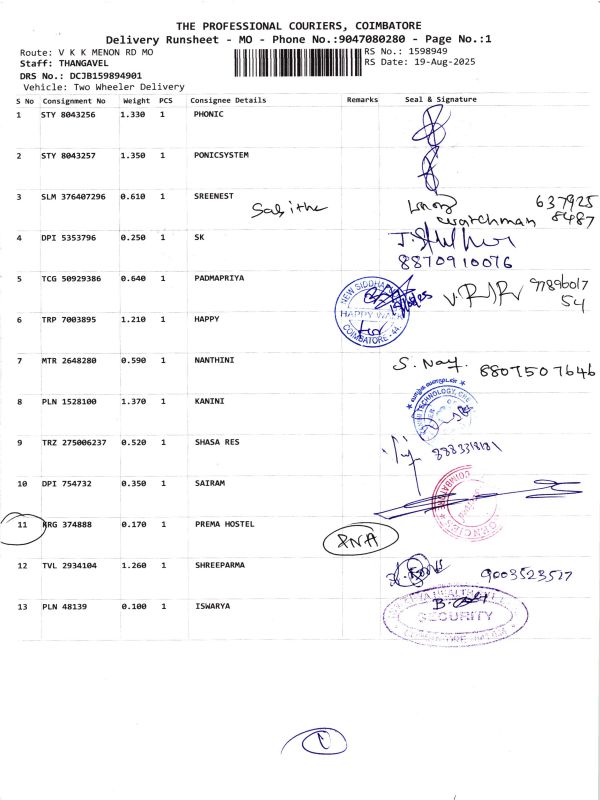 THE PROFESSIONAL COURIERS, COIMBATORE
Delivery Runsheet - MO - Phone No.:9047080280 - Page No.:1
Route: V K K MENON RD MO RS No.: 1598949
Staff: THANGAVEL RS Date: 19-Aug-2025
DRS No.: DCJB159894901
Vehicle: Two Wheeler Delivery
S No Consignment No Weight PCS Consignee Details Remarks Seal & Signature
1 STY 8043256 1.330 1 PHONIC
2 STY 8043257 1.350 1 PONICSYSTEM
3 SLM 376407296 0.610 1 SREENEST
Sabitha watchman 637925
8487
4 DPI 5353796 0.250 1 SK
8870910076
5 TCG 50929386 0.640 1 PADMAPRIYA
54
NEW SIDDHA
HAPPY
COIMBATORE - 44.
6 TRP 7003895 1.210 1 HAPPY
7 MTR 2648280 0.590 1 NANTHINI
S. Nay. 8807507646
8 PLN 1528100 1.370 1 KANINI
TECHNOLOGY, CBE
9 TRZ 275006237 0.520 1 SHASA RES
10 DPI 754732 0.350 1 SAIRAM
COIMBATORE
AGENCIES
11 KRG 374888 0.170 1 PREMA HOSTEL
PNA
12 TVL 2934104 1.260 1 SHREEPARMA
9003523517
13 PLN 48139 0.100 1 ISWARYA
SECURITY